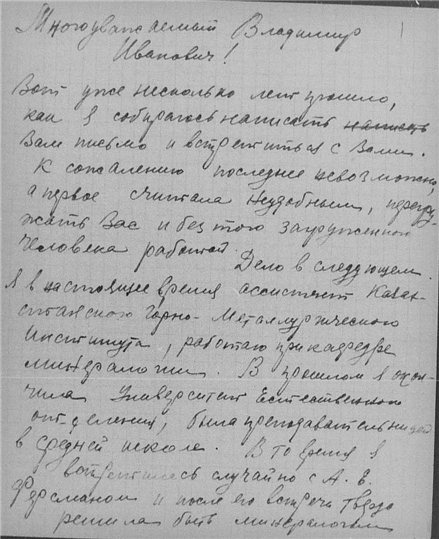 Многоуважаемый Владимир
Иванович!
Вот уже несколько лет прошло,
как я собиралась написать написать
Вам письмо и встретиться с Вами.
К сожалению последнее невозможно
а первое считала неудобным, перегру-
жать Вас и без того загруженного
человека работой.
Дело в следующем.
Я в настоящее время ассистент Казах-
станского Горно-Металлургического
Института, работаю при кафедре
минералогии. В прошлом я окон-
чила Университет Естественное
отделение, была преподавательницей
в средней школе. В то время я
встретилась случайно с А. Е.
Ферсманом и после его встречи твердо
решила быть минералогом